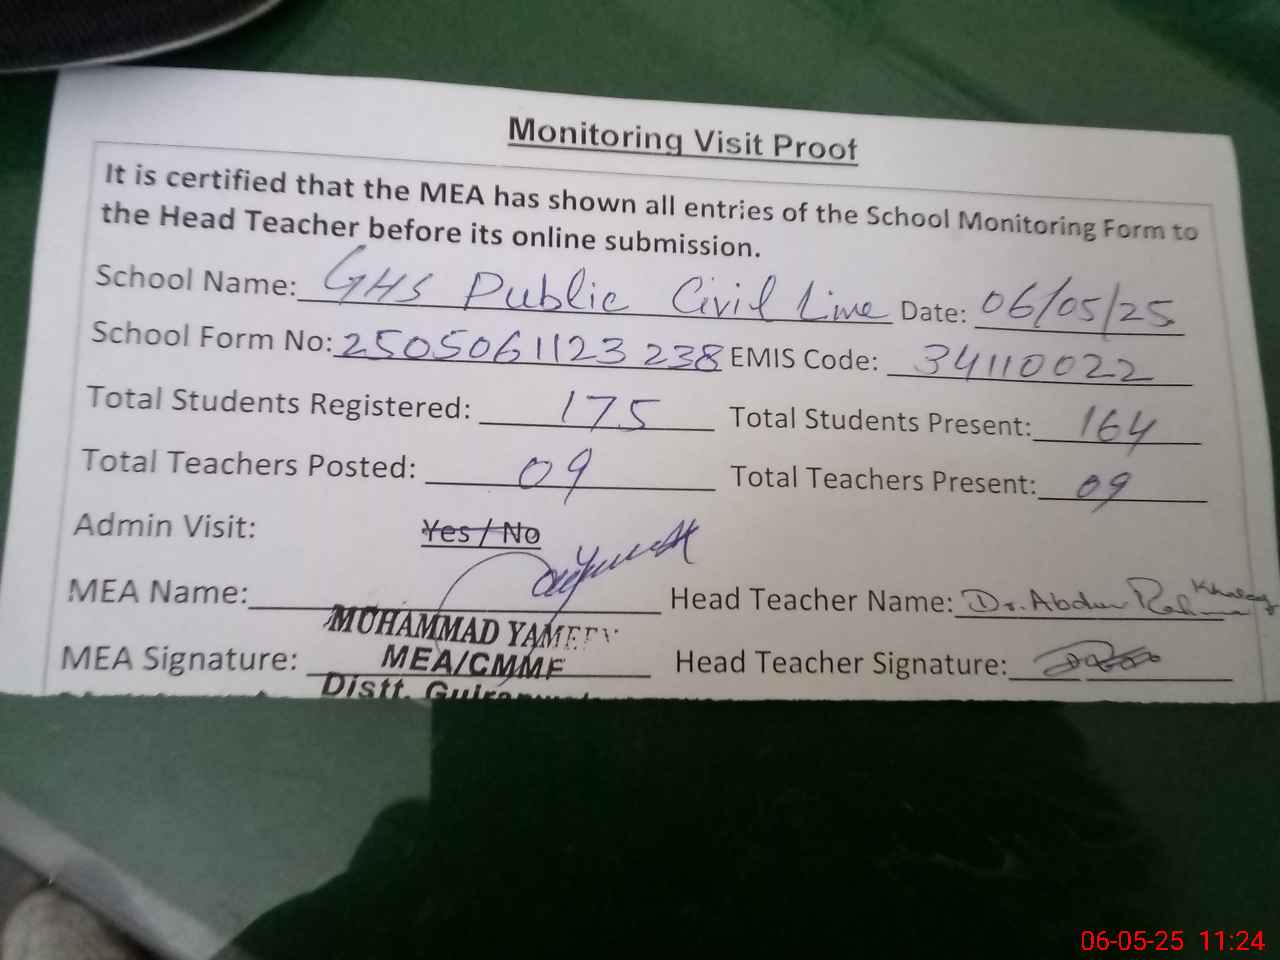 Monitoring Visit Proof
It is certified that the MEA has shown all entries of the School Monitoring Form to
the Head Teacher before its online submission.
School Name: GHS Public Civil Line Date: 06/05/25
School Form No: 2505061123238 EMIS Code: 34110022
Total Students Registered: 175 Total Students Present: 164
Total Teachers Posted: 09 Total Teachers Present: 09
Admin Visit: Yes / No
MEA Name: Head Teacher Name: Dr. Abdur Rehman
MUHAMMAD YAMEEN
MEA Signature: MEA/CMMF Head Teacher Signature:
Distt.
06-05-25 11:24